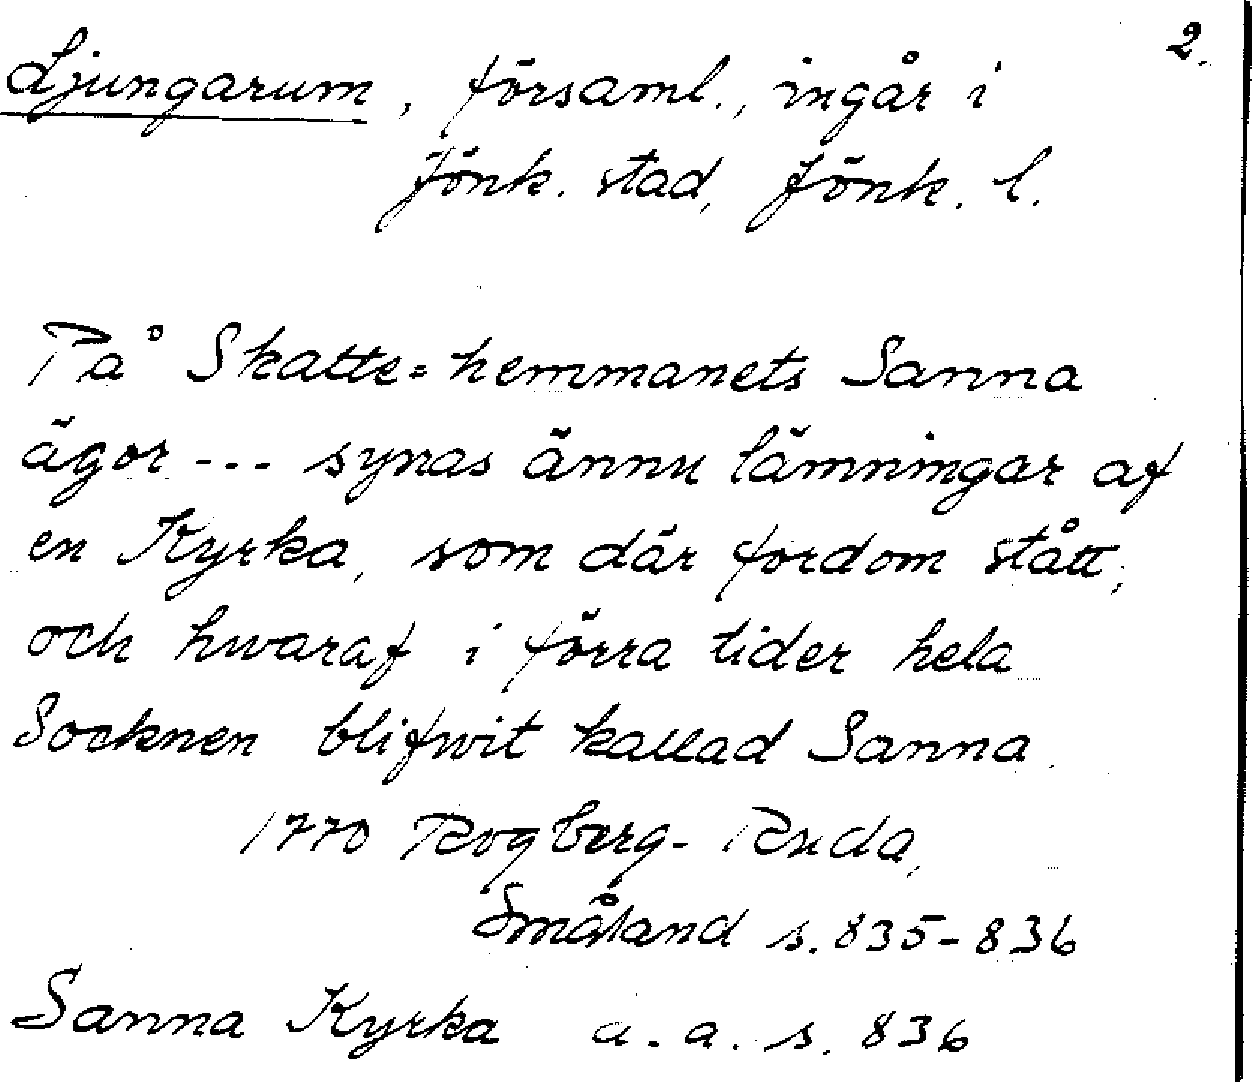 2.
Ljungarum, församl., ingår i
Jönk. stad, Jönk. l.
På Skatte=hemmanets Sanna
ägor --- synas ännu lämningar af
en Kyrka, som där fordom stått;
och hwaraf i förra tider hela
Socknen blifwit kallad Sanna.
1770 Rogberg-Ruda,
Småland s. 835-836
Sanna Kyrka a. a. s. 836